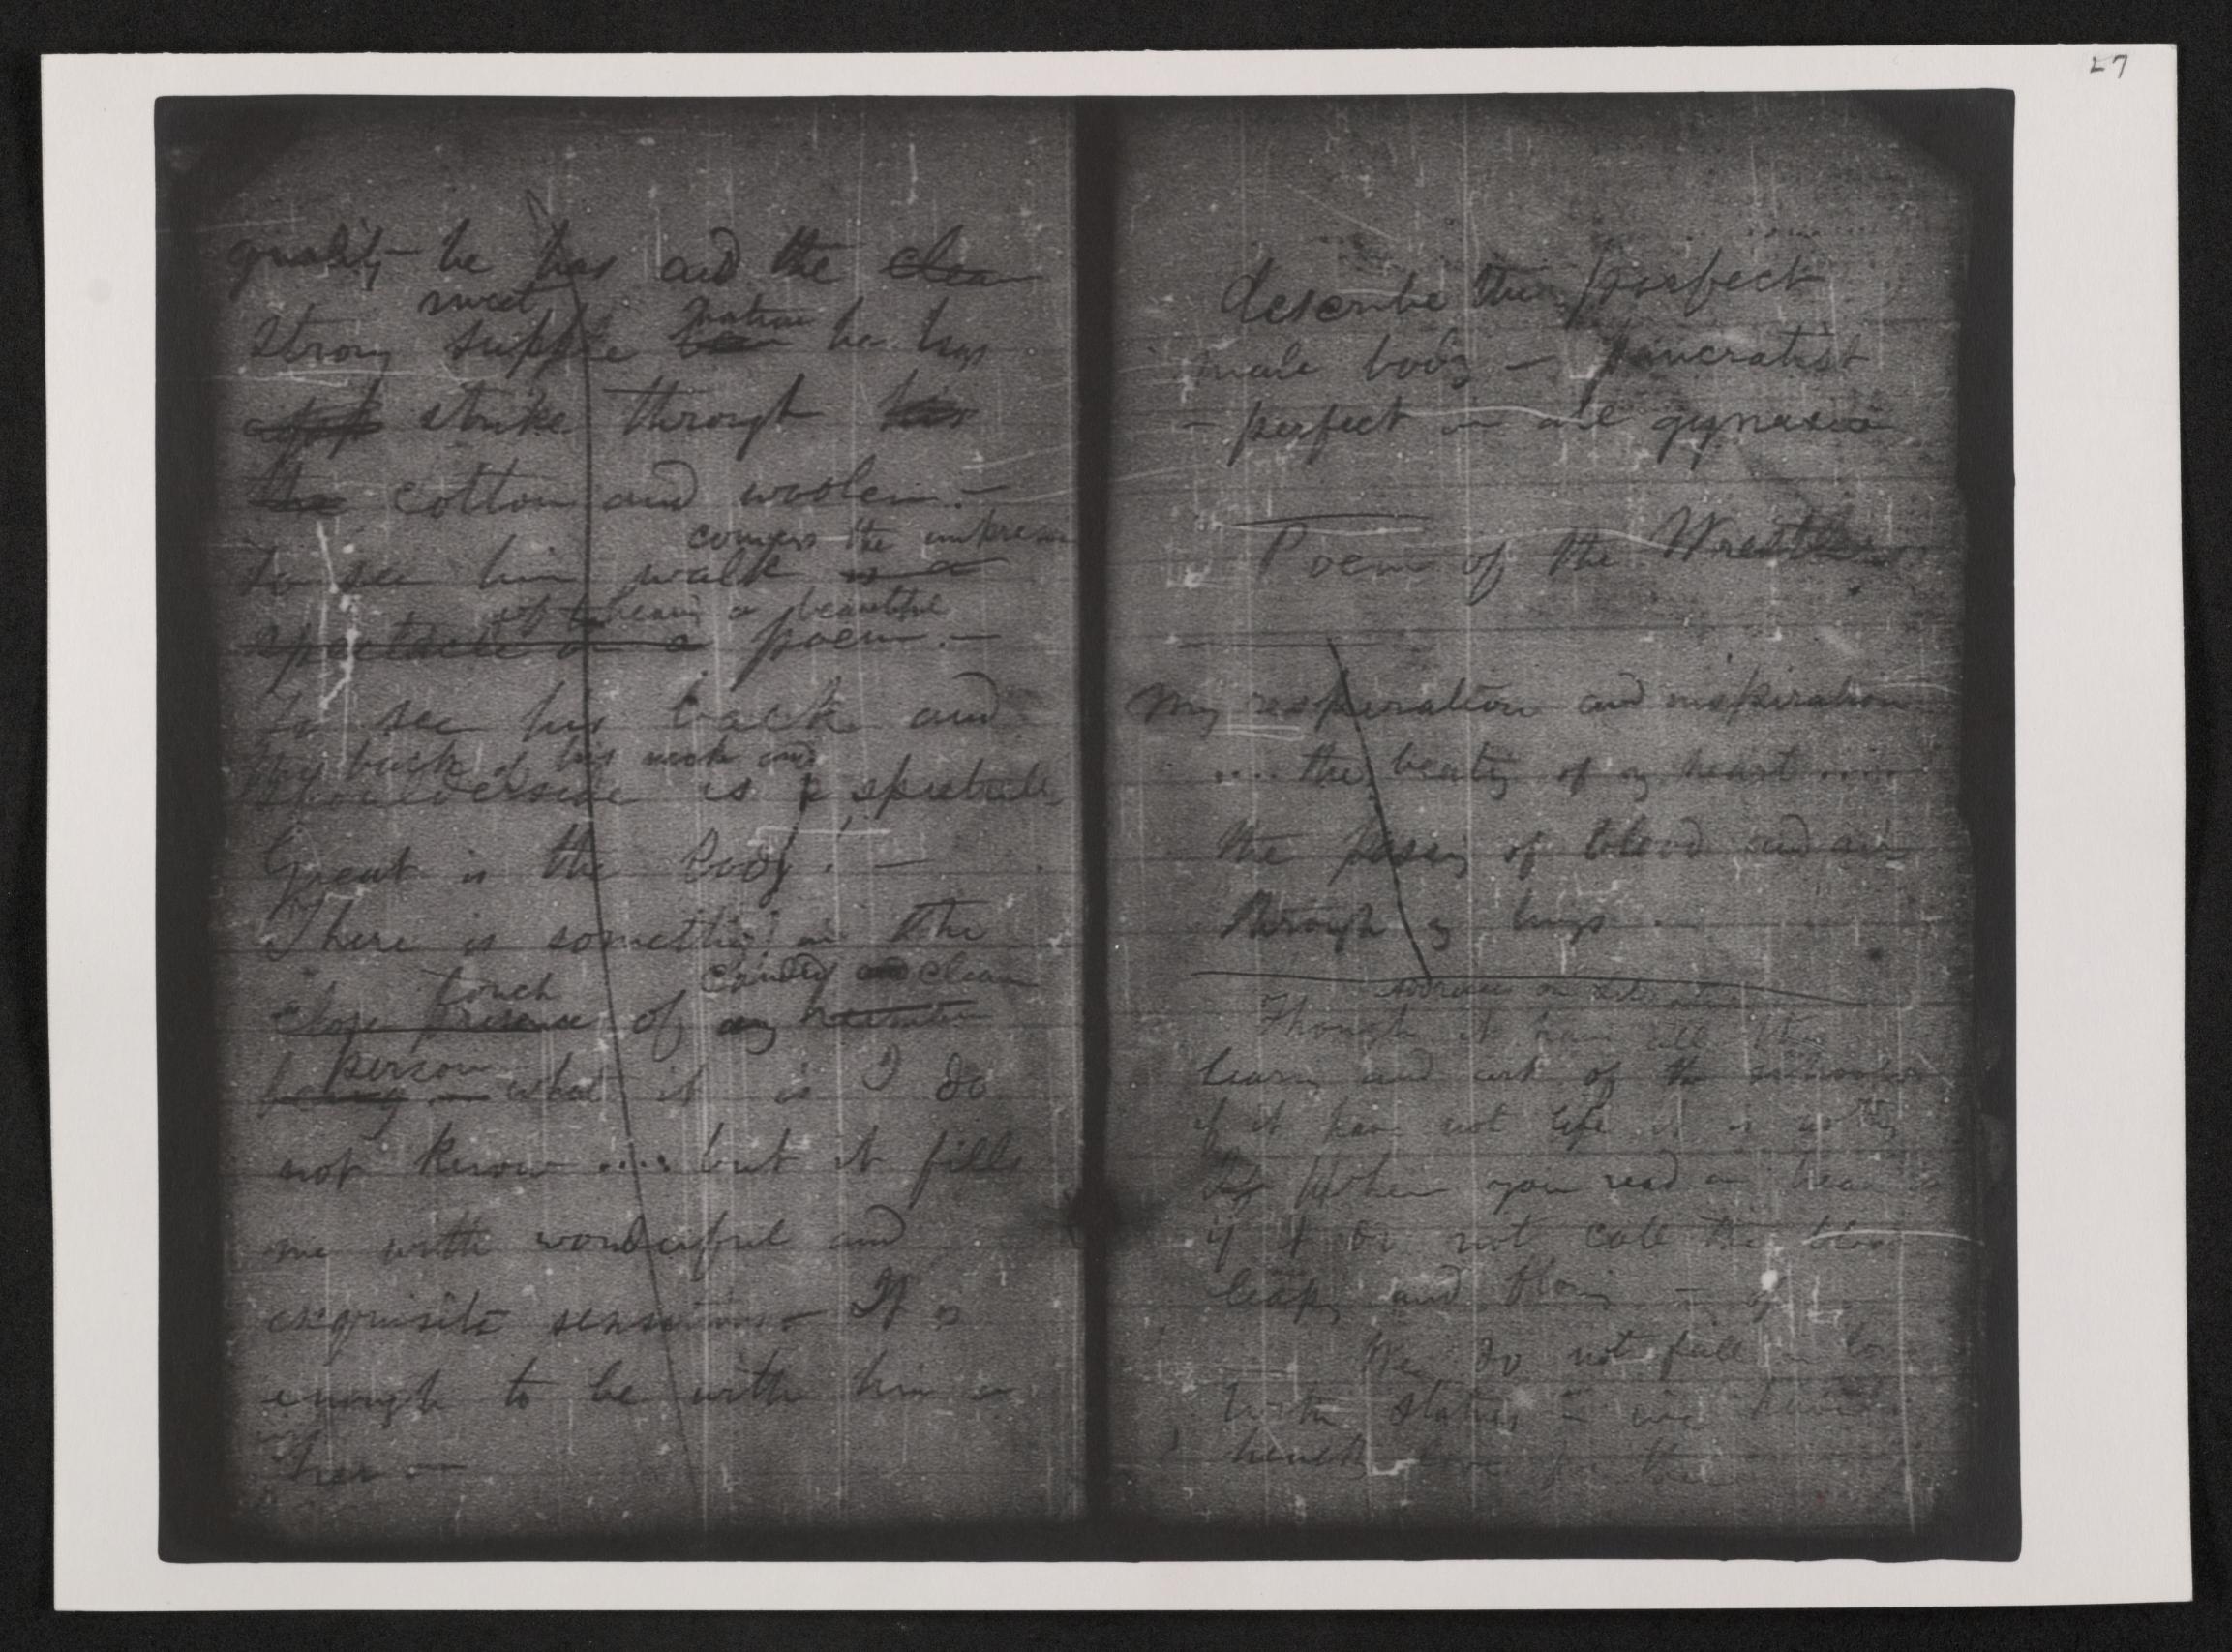 27
quality he has and the clea
sweet
strong supple nature he has
strike through his
the cotton and woolen.—
conveys the impress
To see him walk is a
of hearing a beautiful
spectacle or a poem.—
To see his back and
the back of his neck and
shoulderside is a spectacle
Great is the body!—
There is something in the
touch candid and clean
close presence of any human
person
being — what it is I do
not know .... but it fills
me with wonderful and
exquisite sensations. It is
enough to be with him or
her —
describe the perfect
male body — pancratist
— perfect in all gymnasia
Poem of the Wrestlers
My respiration and inspiration
.... the beating of my heart ....
the passing of blood and air
through my lungs
Address on Literature
Though it have all the
learning and art of the schools
if it have not life it is nothing
When you read or hear
if it do not call the blood
leaping and flowing —
We do not fall in love
with statues — we have
love for them